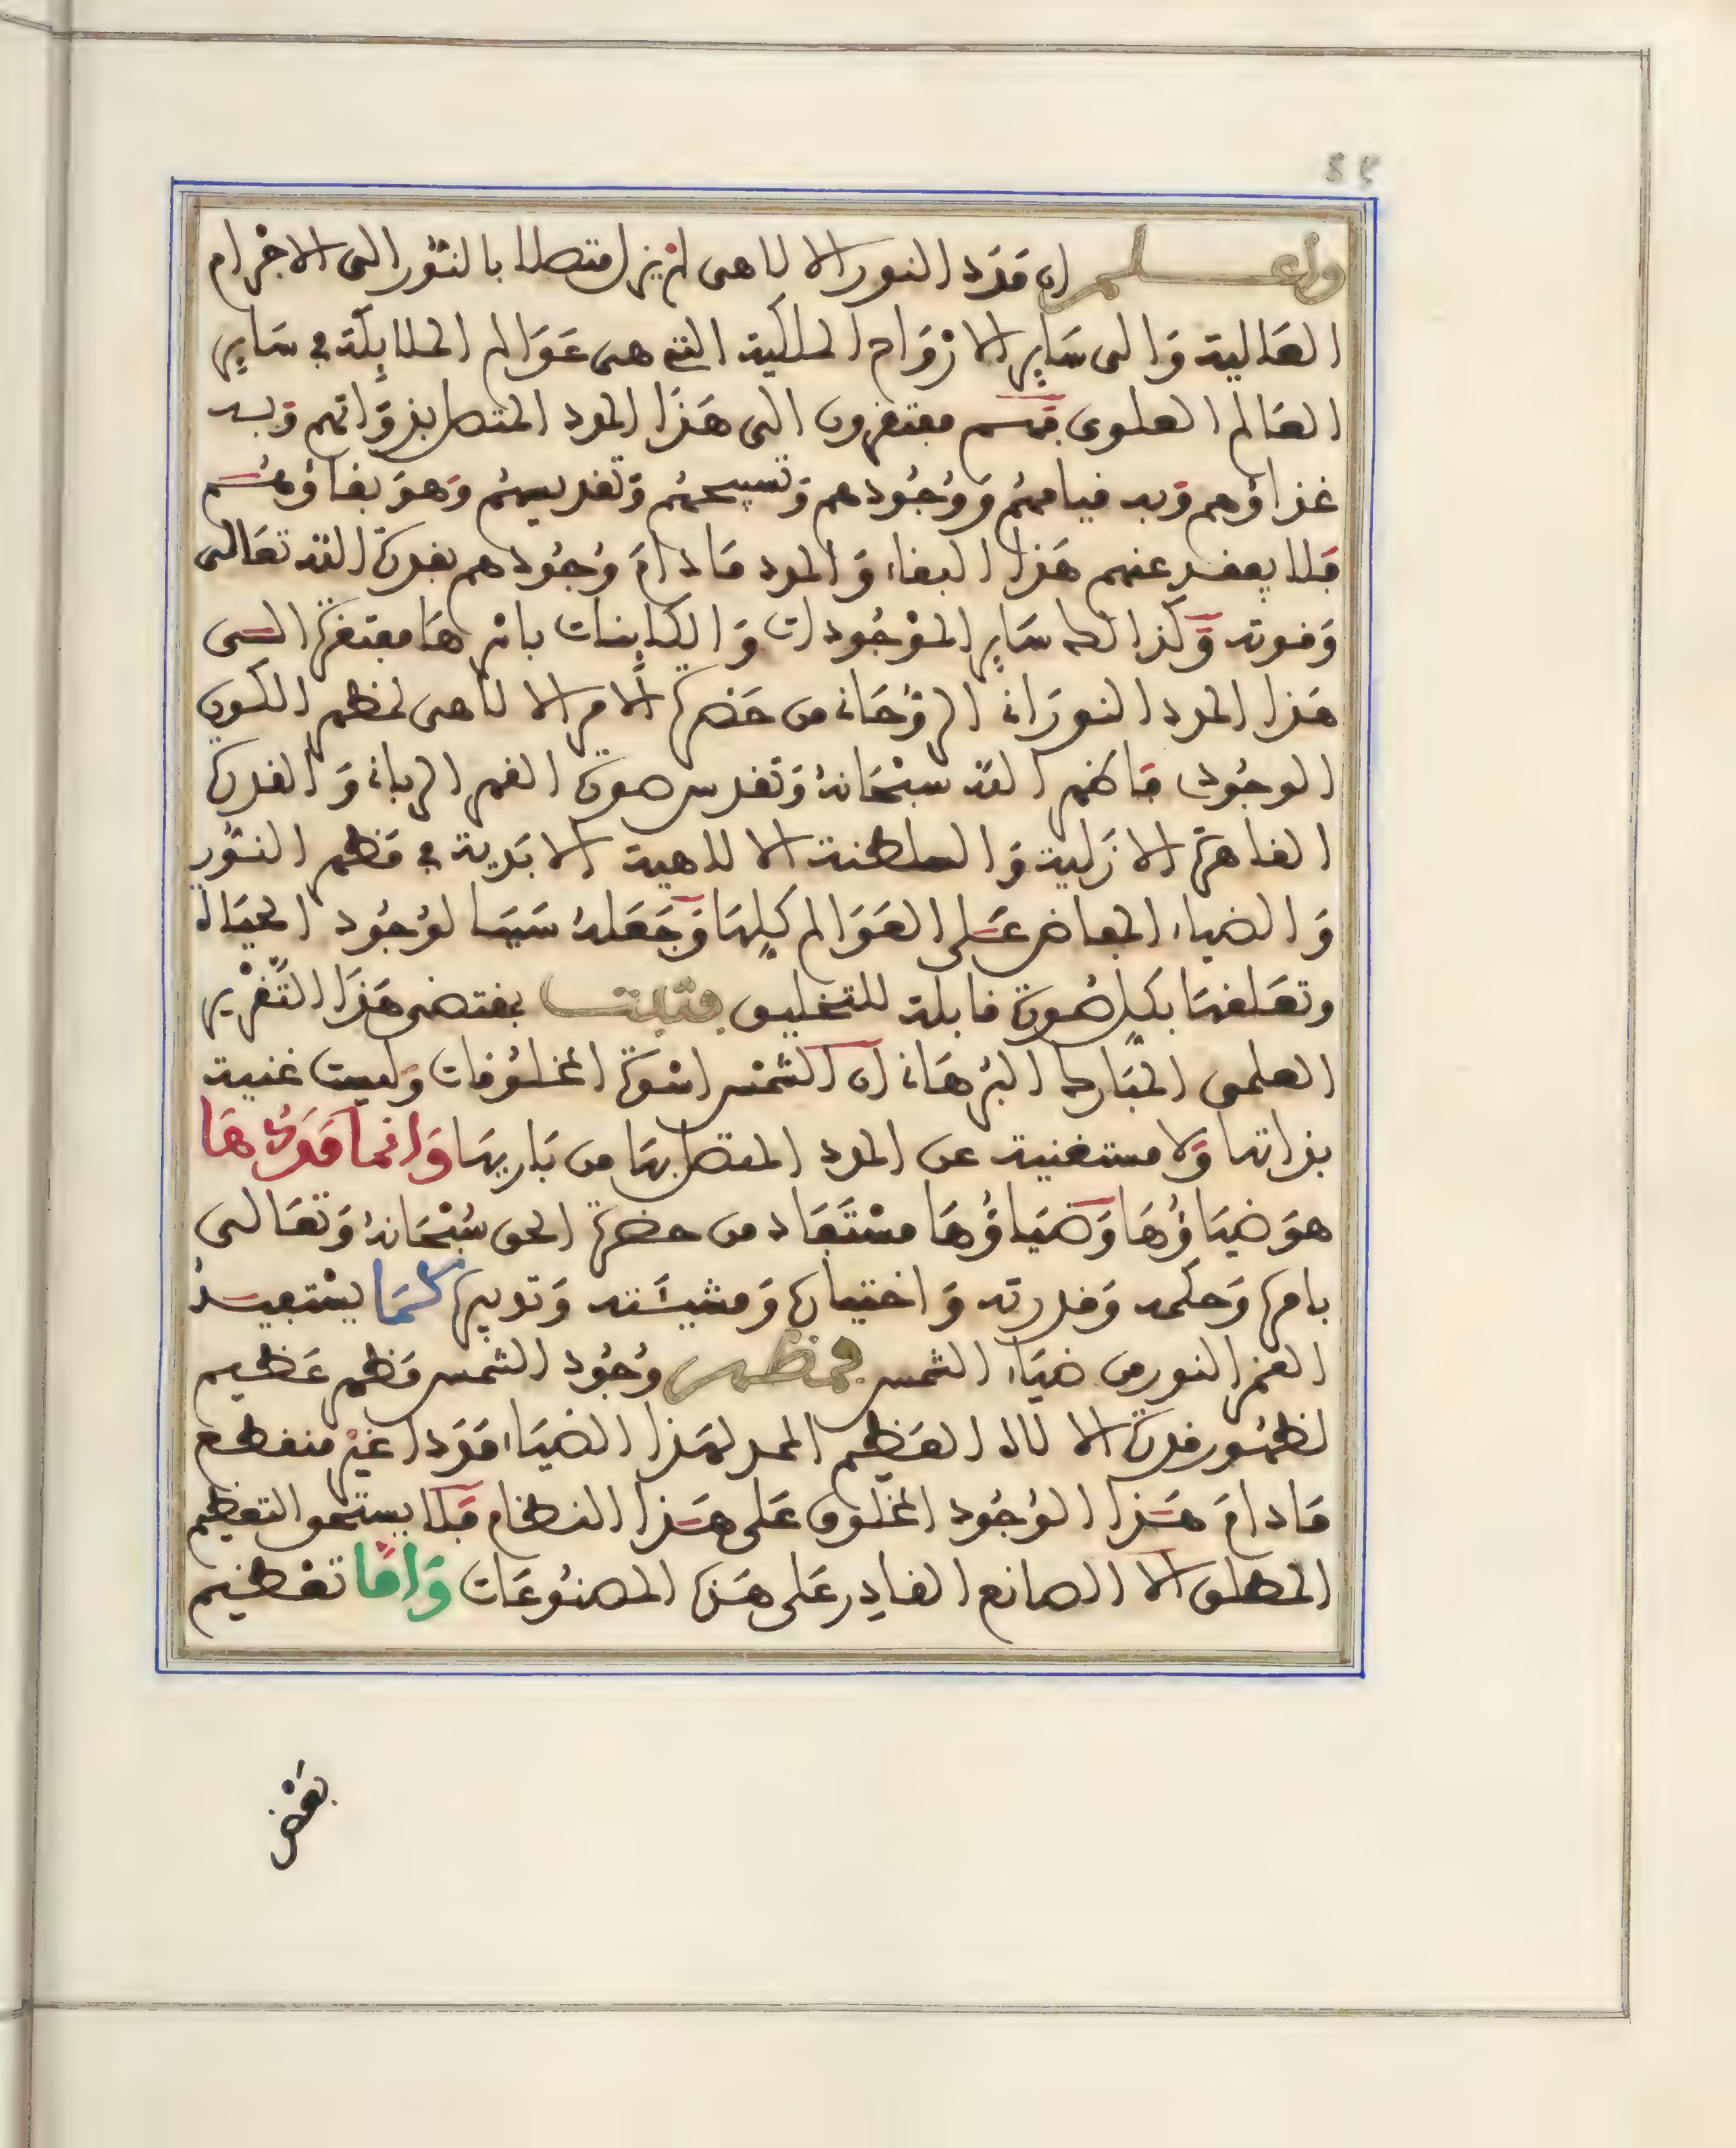 واعلم ان مدد النور الالاهى لم يزل متصلا بالنور الى الاجرام
العالية والى ساير الارواح الملكية التى هى عوالم الملايكة فى ساير
العالم العلوى فهم مفتقرون الى هذا المدد المتصل بذواتهم وبه
غذاؤهم وبه قيامهم ووجودهم وتسبيحهم وتقديسهم وهو بقاؤهم
فلا يفقد عنهم هذا البقاء والمدد مادام وجودهم بقدرة الله تعالى
وقوته وكذالك ساير الموجودات والكاينات باسرها مفتقرة الى
هذا المدد النورانى الروحانى من حضرة الامر الالاهى لمظهر الكون
الوجودى فاظهر الله سبحانه وتقدس صورة القهر الربانى والقدرة
القاهرة الازلية والسلطنة الالاهية الابدية فى مظهر النور
والضياء المفاض على العوالم كلها وجعله سببا لوجود الحياة
وتعلقها بكل صورة قابلة للتخليق فثبت بمقتضى هذا التقرير
العلمى المبارك البرهانى ان الشمس اسوة المخلوقات وليست غنية
بذاتها ولا مستغنية عن المدد المتصل بها من باريها وانما مددها
هو ضياؤها وضياؤها مستفاد من حضرة الحق سبحانه وتعالى
بامره وحكمه وقدرته واختياره ومشيئته وتدبيره كما يستفيد
القمر النور من ضياء الشمس فمظهر وجود الشمس مظهر عظيم
لظهور قدرة الالاه العظيم الممد لهذا الضياء مددا غير منقطع
مادام هذا الوجود المخلوق على هذا النظام فلا يستحق التعظيم
المطلق الا الصانع القادر على هذه المصنوعات واما تعظيم
بعض